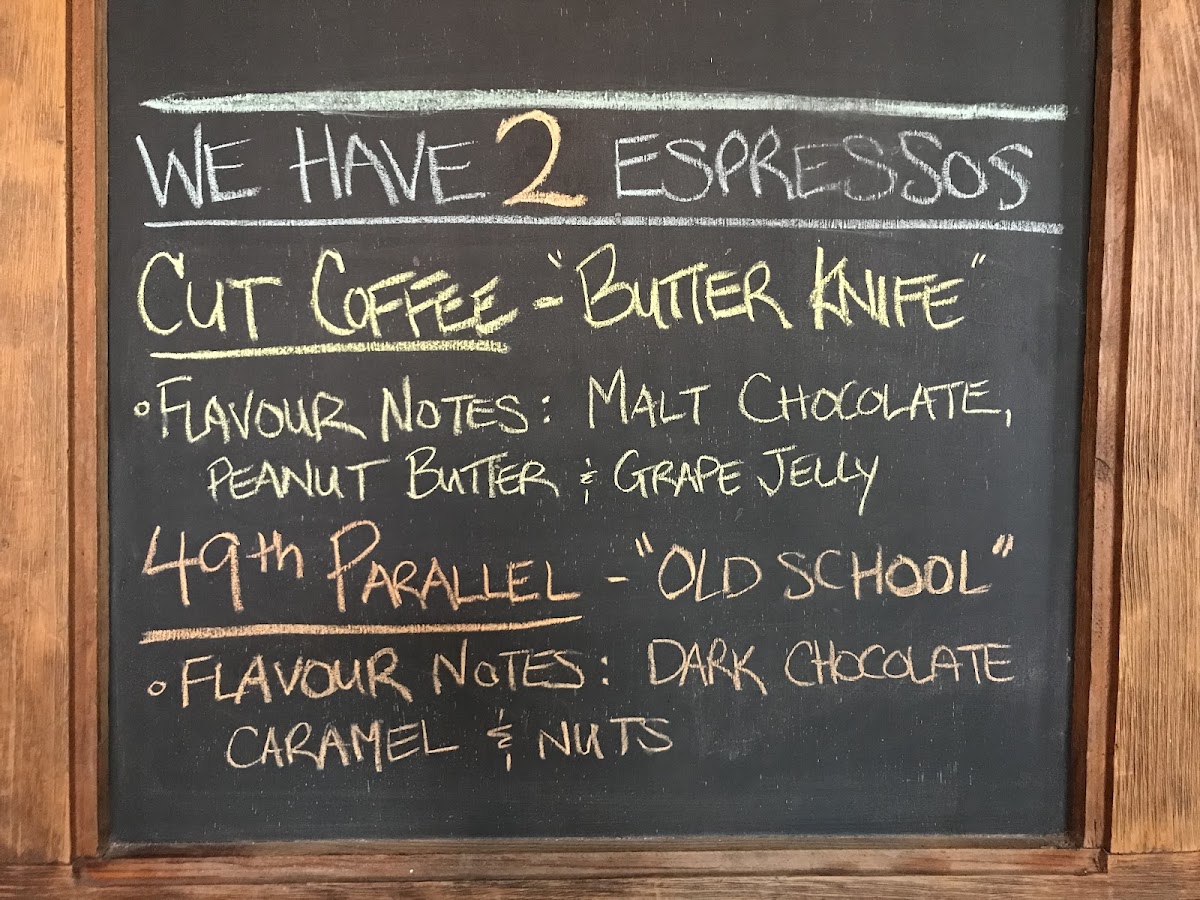 WE HAVE 2 ESPRESSOS
CUT COFFEE - "BUTTER KNIFE"
• FLAVOUR NOTES: MALT CHOCOLATE,
PEANUT BUTTER & GRAPE JELLY
49th PARALLEL - "OLD SCHOOL"
• FLAVOUR NOTES: DARK CHOCOLATE
CARAMEL & NUTS